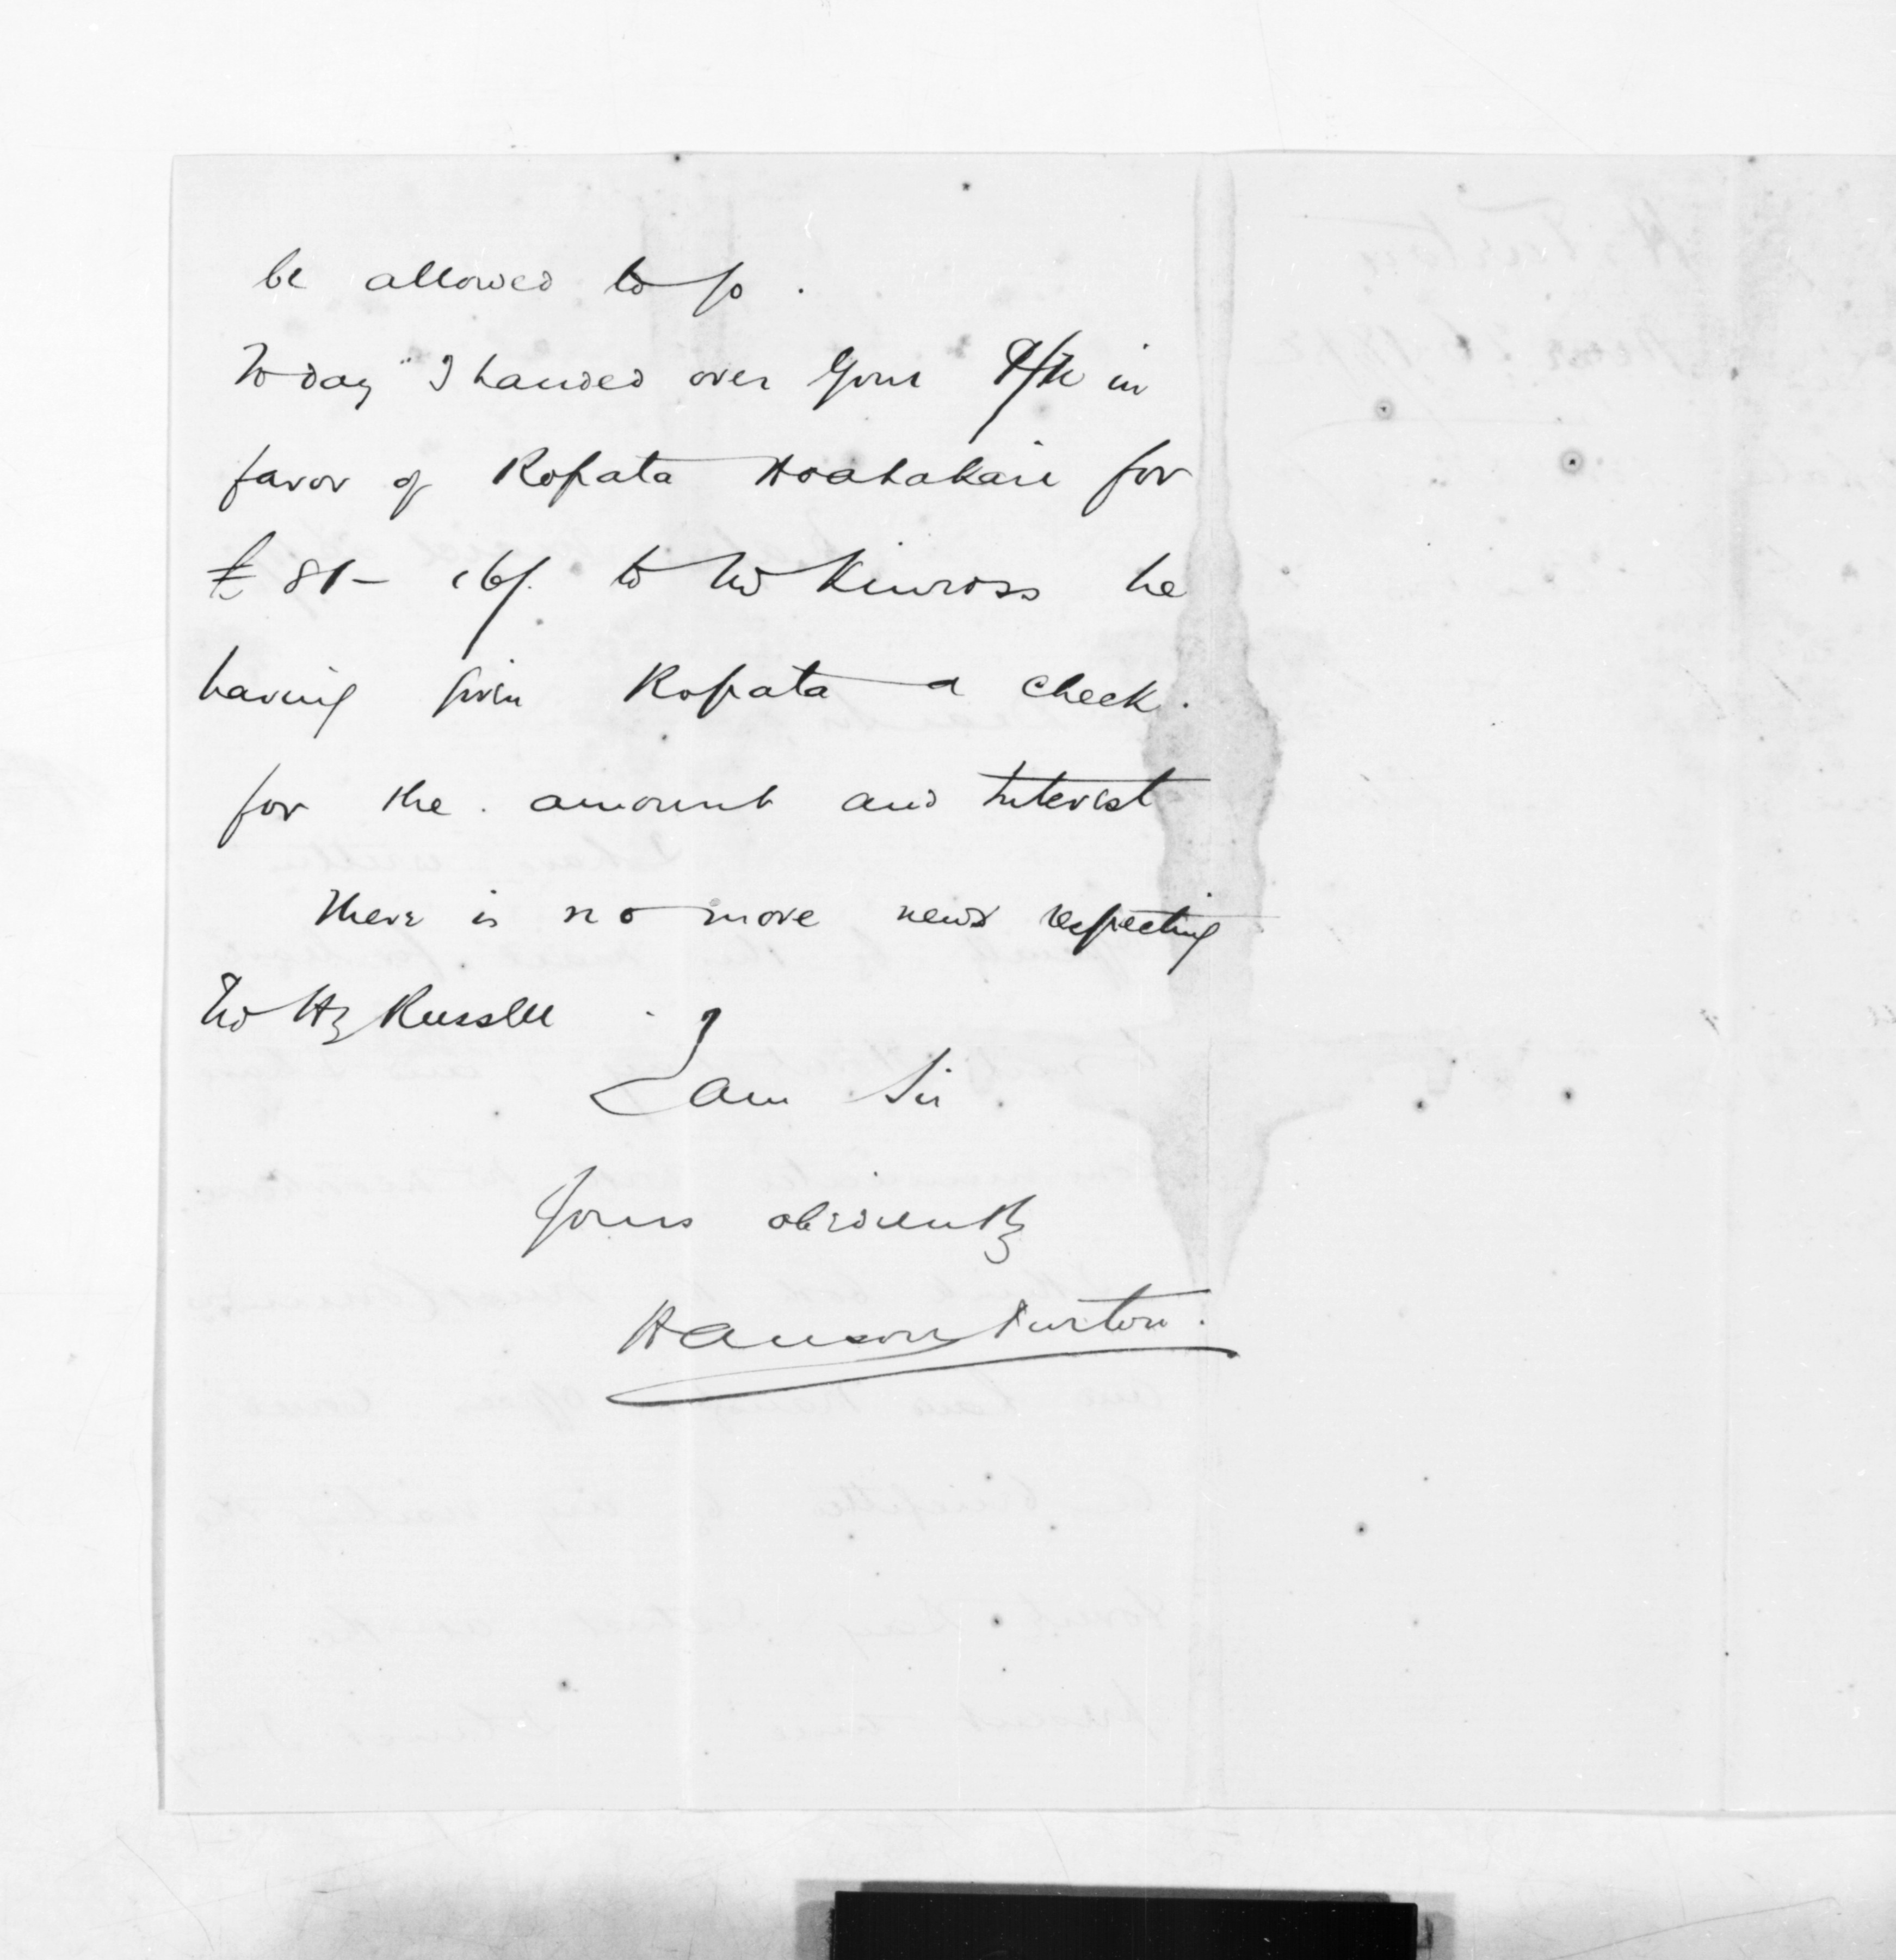 be allowed to go.
Today I handed over your P/N in
favor of Ropata Hoahakari for
£81- 16/. to Mr Kinross he
having given Ropata a check.
for the amount and Interest
There is no more news respecting
Mr Hy Russell.
I am Sir.
Yours obediently
Hanson Turton.